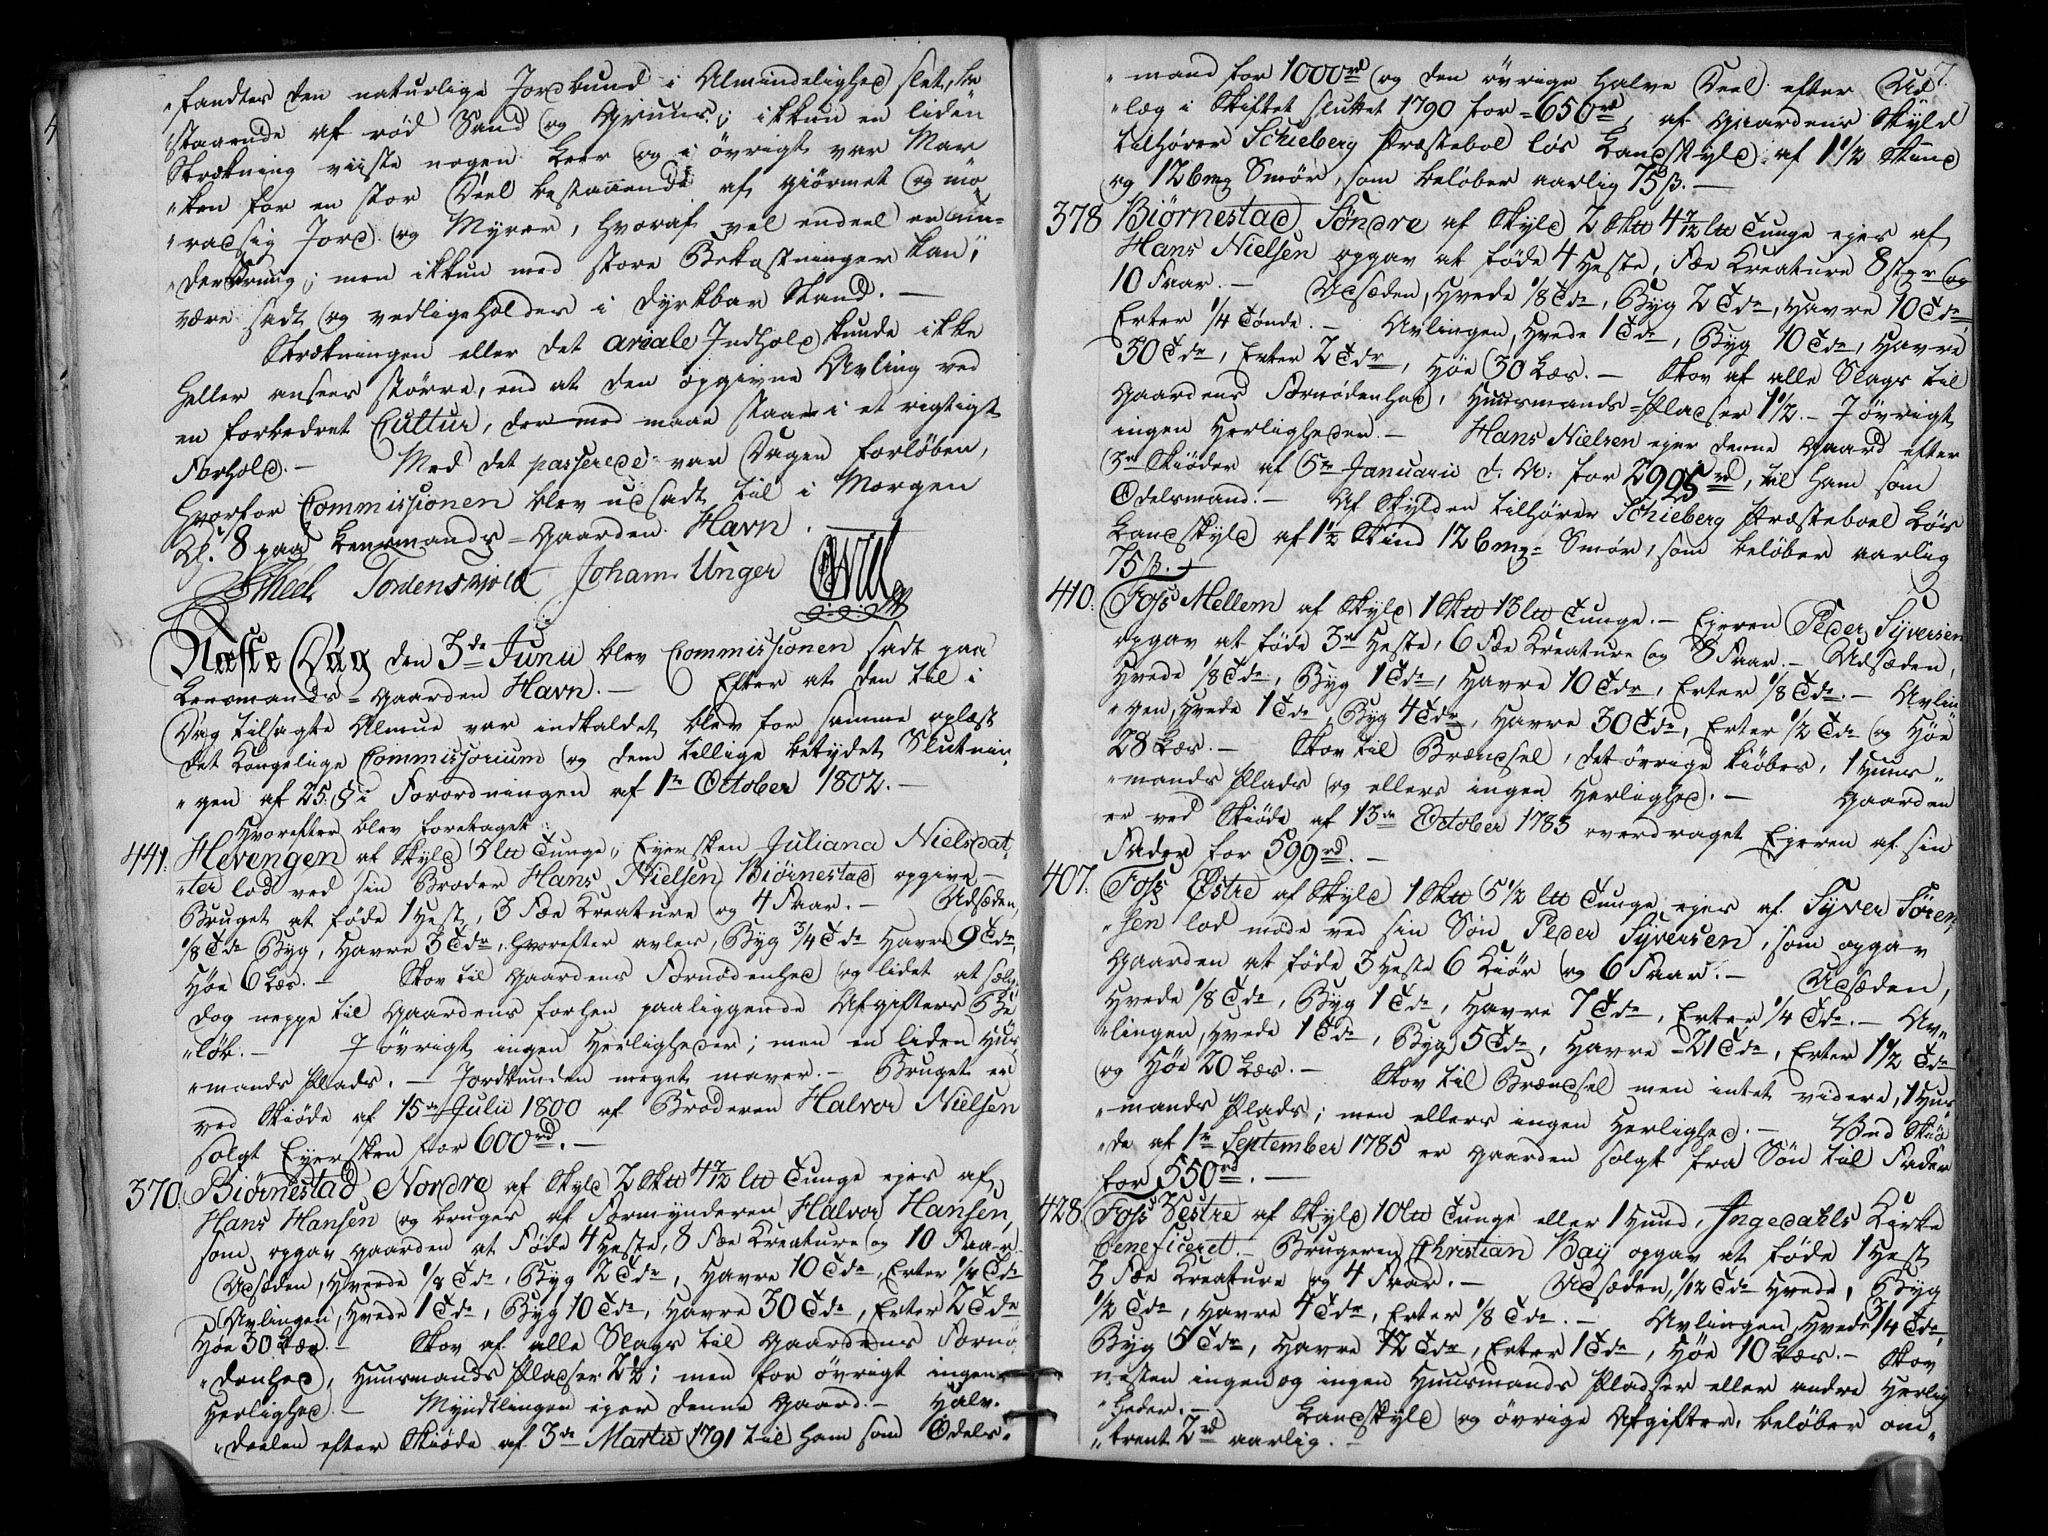 "fandtes den naturlige Jordbund i Almindelighed slet, be
"staaende af rød Sand og Gruus; ikkun en liden
Strækning viiste nogen Leer og i øvrigt var Mar
"ken for en stor Deel bestaaende af giørmet og mo
"radsig Jord og Myrer, hvoraf vel endeel er
men ikkun med store Bekostninger kan
være sadt og vedligeholdes i dyrkbar Stand. —
Strækningen eller det areale Indhold kunde ikke
heller ansees større, end at den opgivne Avling ved
en forbedret Cultur, dermed maae staae i et rigtigt
Forhold. — Med det passerede var Dagen forløben,
hvorfor Commissionen blev udsadt til i Morgen
Kl. 8 paa Lensmands-Gaarden Havn.
Scheel Tordenskjold Johan Unger OWill
Næste Dag den 3de Junii blev Commissionen sadt paa
Lensmands-Gaarden Havn. — Efter at den til i
Dag tilsagte Almue var indkaldet blev for samme oplæst
det Kongelige Commissorium og dem tillige betydet Slutnin-
"gen af 25. § i Forordningen af 1te October 1802. —
Hvorefter blev foretaget:
441. Hevengen af Skyld 5 ltt Tunge, Eyersken Juliana Nielsdat-
"ter lod ved sin Broder Hans Nielsen Biørnestad opgive —
Bruget at føde 1 Hest, 3 Fæe Kreature og 4 Faar. — Udsæden,
1/8 Tde Byg, Havre 3 Tdr, hvorefter avles, Byg 3/4 Tde Havre 9 Tdr,
Høe 6 Læs. — Skov til Gaardens Fornødenhed og lidet at sælge
dog neppe til Gaardens forhen paaliggende Afgifters Be
"løb. — I øvrigt ingen Herligheder; men en liden Huus
"mands Plads. — Jordbunden meget maver. — Bruget er
ved Skiøde af 15de Julii 1800 af Broderen Halvor Nielsen
solgt Eyersken for 600 rd. —
370. Biørnestad Nordre af Skyld 2 Sktt 4 1/2 ltt Tunge ejes af
Hans Hansen og bruges af Formynderen Halvor Hansen,
som opgav Gaarden at Føde 4 Heste, 8 Fæe Kreature og 10 Faar
Udsæden, Hvede 1/8 Tde, Byg 2 Tdr, Havre 10 Tdr, Erter 1/8 Tde
Avlingen, Hvede 1 Tde, Byg 10 Tdr, Havre 30 Tdr, Erter 2 Tdr
Høe 30 Læs. — Skov af alle Slags til Gaardens Fornø
"denhed, Huusmands Pladser 2 1/2; men for øvrigt ingen
Herlighed. — Myndtlingen ejer denne Gaard. — Halv-
"deelen efter Skiøde af 3de Martii 1791 til ham som Odels-
7.
"mand for 1000 rd og den øvrige halve Deel efter Ud
"læg i Skiftet sluttet 1790 for 650 rd, af Gaardens Skyld
tilhører Schieberg Præstebol løs Landskyld af 1 1/2 Skind
og 12 bmg Smør, som beløber aarlig 75 ß. —
378 Biørnestad Søndre af Skyld 2 Sktt 4 1/2 ltt Tunge ejes af
Hans Nielsen opgav at føde 4 Heste, Fæe Kreature 8 stkr og
10 Faar. — Udsæden, Hvede 1/8 Tde, Byg 2 Tdr, Havre 10 Tdr
Erter 1/4 Tønde. — Avlingen, Hvede 1 Tde, Byg 10 Tdr, Havre
30 Tdr, Erter 2 Tdr, Høe 30 Læs. — Skov af alle Slags til
Gaardens Fornødenhed, Huusmands-Pladser 1 1/2. — I øvrigt
ingen Herligheder. — Hans Nielsen ejer denne Gaard efter
3de Skiøder af 5te Januarii d. A. for 2995 rd, til ham som
Odelsmand. — Af Skylden tilhører Schieberg Præsteboel Løs
Landskyld af 1 1/2 Skind 12 bmg Smør, som beløber aarlig
75 ß. —
410. Foss Mellem af Skyld 1 Sktt 13 ltt Tunge. — Ejeren Peder Syversen
opgav at føde 3de Heste, 6 Fæe Kreature og 8 Faar. — Udsæden,
Hvede 1/8 Tde, Byg 1 Tde, Havre 10 Tdr, Erter 1/8 Tde. — Avlin
"gen, Hvede 1 Tde, Byg 4 Tdr, Havre 30 Tdr, Erter 1/2 Tde og Høe
28 Læs. — Skov til Brændsel, det øvrige kiøbes, 1 Huus-
"mands Plads og ellers ingen Herlighed. — Gaarden
er ved Skiøde af 13de October 1783 overdraget Ejeren af sin
Fader for 599 rd. —
407. Foss Østre af Skyld 1 Sktt 5 1/2 ltt Tunge ejes af Syver Søren-
"sen lod møde ved sin Søn Peder Syversen, som opgav
Gaarden at føde 3 Heste 6 Kiør og 6 Faar. — Udsæden,
Hvede 1/8 Tde, Byg 1 Tde, Havre 7 Tdr, Erter 1/4 Tde. — Av-
"lingen, Hvede 1 Tde, Byg 5 Tdr, Havre 21 Tdr, Erter 1 1/2 Tde
og Høe 20 Læs. — Skov til Brændsel men intet videre, 1 Huus
"mands Plads; men ellers ingen Herlighed. — Ved Skiø
"de af 1te September 1785 er Gaarden solgt fra Søn til Fader
for 550 rd. —
428. Foss Vestre af Skyld 10 ltt Tunge eller 1 Hund, Ingedahls Kirke
beneficeret. — Brugeren Christian Bay opgav at føde 1 Hest
3 Fæe Kreature og 4 Faar. — Udsæden, 1/12 Tde Hvede, Byg
1/2 Tde, Havre 4 Tdr, Erter 1/8 Tde. — Avlingen, Hvede 3/4 Tde,
Byg 5 Tdr, Havre 12 Tdr, Erter 1 Tde, Høe 10 Læs. — Skov
nesten ingen og ingen Huusmands Pladser eller andre Herlig
"heder. — Landskyld og øvrige Afgifter, beløber om-
"trent 2 rd aarlig. —